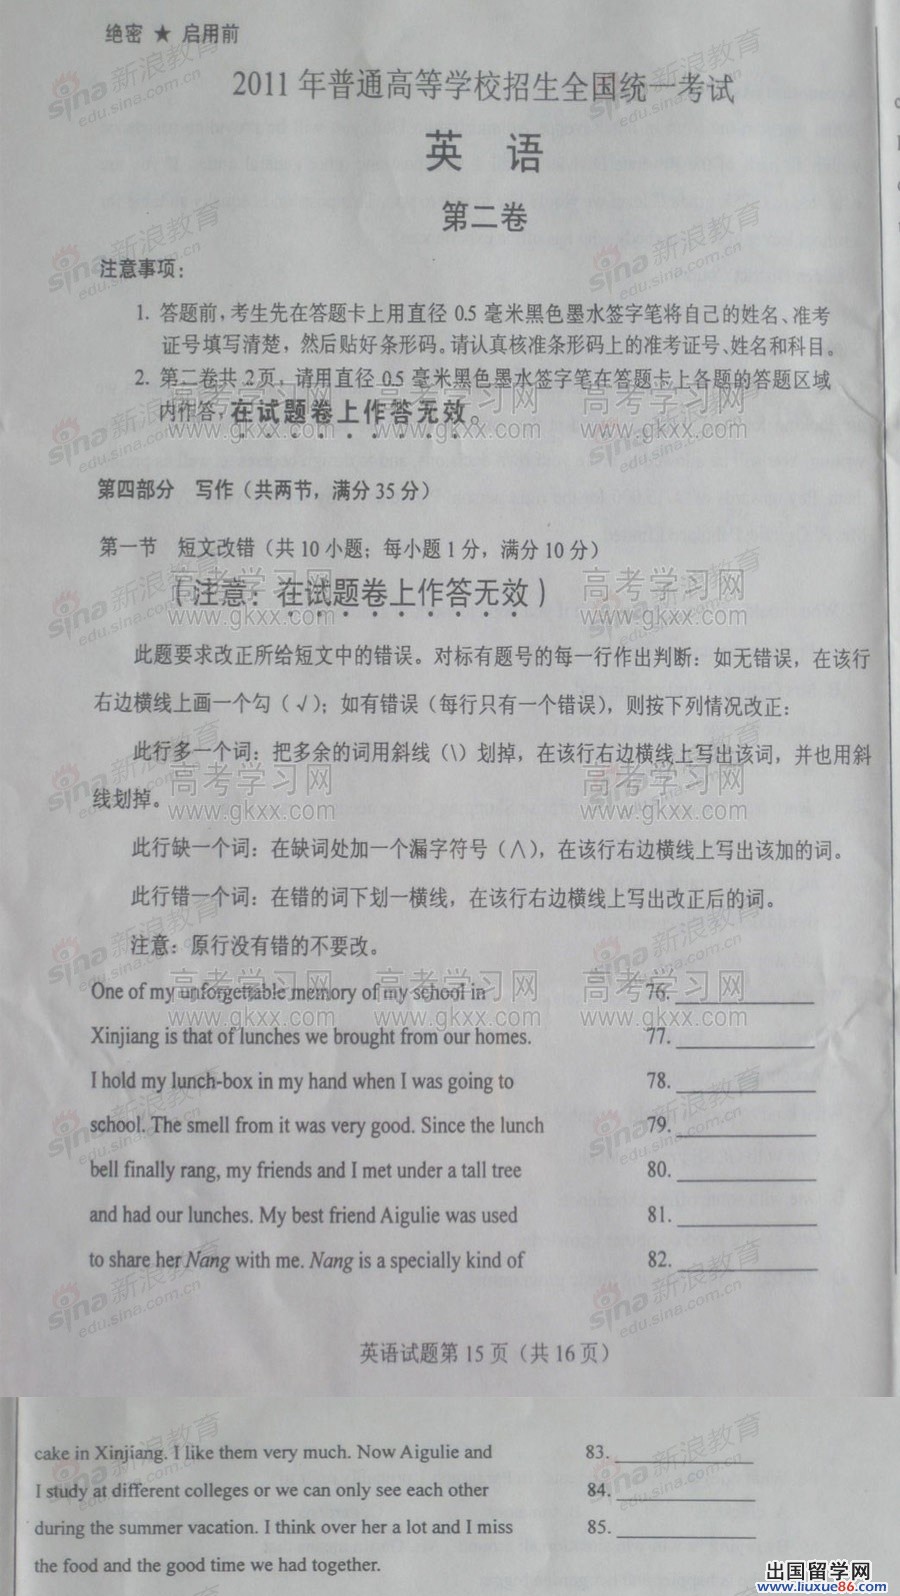 绝密 ★ 启用前
2011 年普通高等学校招生全国统一考试
英 语
第二卷
注意事项：
1. 答题前，考生先在答题卡上用直径 0.5 毫米黑色墨水签字笔将自己的姓名、准考
证号填写清楚，然后贴好条形码。请认真核准条形码上的准考证号、姓名和科目。
2. 第二卷共 2 页，请用直径 0.5 毫米黑色墨水签字笔在答题卡上各题的答题区域
内作答，在试题卷上作答无效。
第四部分 写作（共两节，满分 35 分）
第一节 短文改错（共 10 小题；每小题 1 分，满分 10 分）
（注意：在试题卷上作答无效）
此题要求改正所给短文中的错误。对标有题号的每一行作出判断：如无错误，在该行
右边横线上画一个勾（√）；如有错误（每行只有一个错误），则按下列情况改正：
此行多一个词：把多余的词用斜线（\）划掉，在该行右边横线上写出该词，并也用斜
线划掉。
此行缺一个词：在缺词处加一个漏字符号（∧），在该行右边横线上写出该加的词。
此行错一个词：在错的词下划一横线，在该行右边横线上写出改正后的词。
注意：原行没有错的不要改。
One of my unforgettable memory of my school in 76. ________
Xinjiang is that of lunches we brought from our homes. 77. ________
I hold my lunch-box in my hand when I was going to 78. ________
school. The smell from it was very good. Since the lunch 79. ________
bell finally rang, my friends and I met under a tall tree 80. ________
and had our lunches. My best friend Aigulie was used 81. ________
to share her Nang with me. Nang is a specially kind of 82. ________
英语试题第 15 页（共 16 页）
cake in Xinjiang. I like them very much. Now Aigulie and 83. ________
I study at different colleges or we can only see each other 84. ________
during the summer vacation. I think over her a lot and I miss 85. ________
the food and the good time we had together.
sina 新浪教育
edu.sina.com.cn
高考学习网
www.gkxx.com
出国留学网
www.liuxue86.com